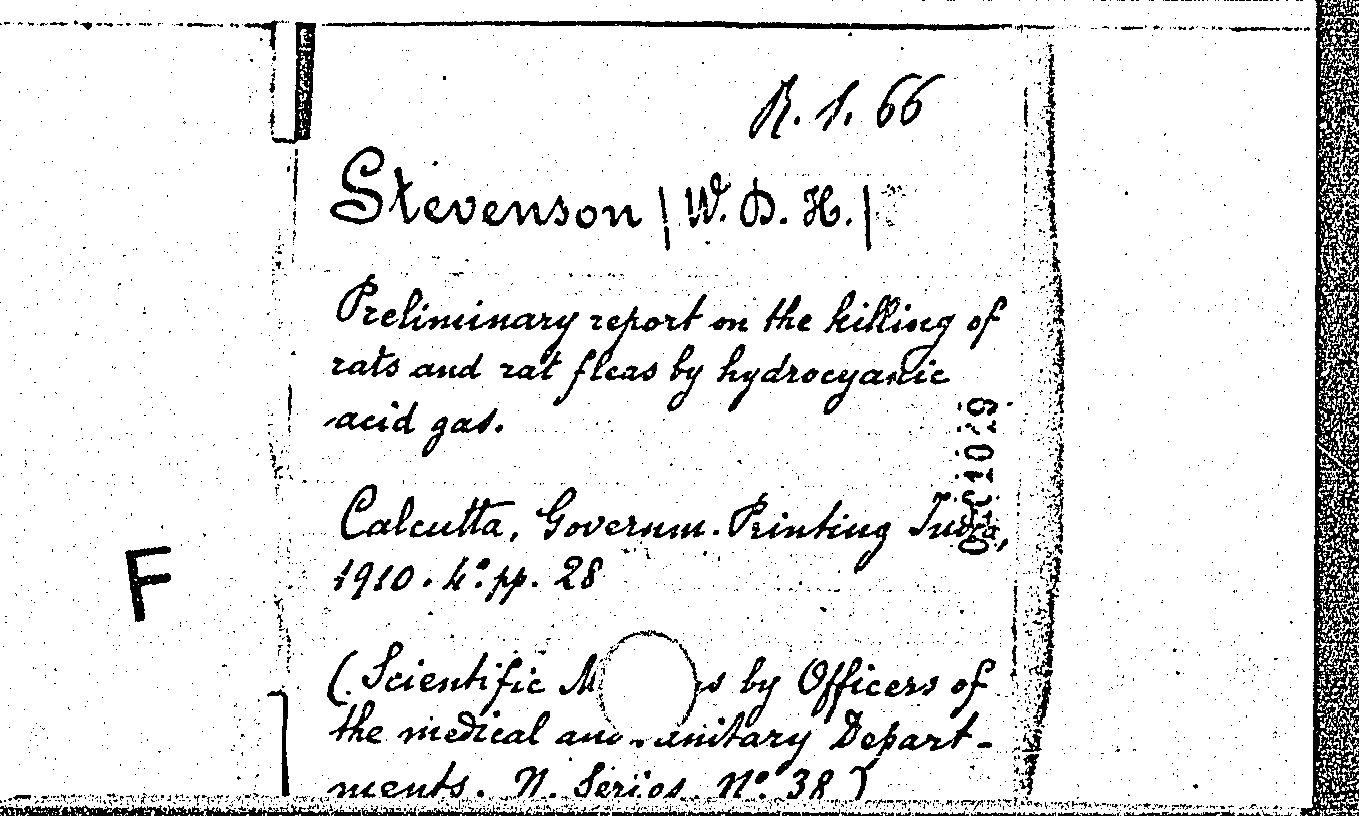 R. S. 66
Stevenson (W. D. H.)
Preliminary report on the killing of
rats and rat fleas by hydrocyanic
acid gas.
Calcutta, Governm. Printing India,
1910. 4° pp. 28
(Scientific by Officers of
the medical and sanitary Depart-
ments. N. Series. N° 38)
F